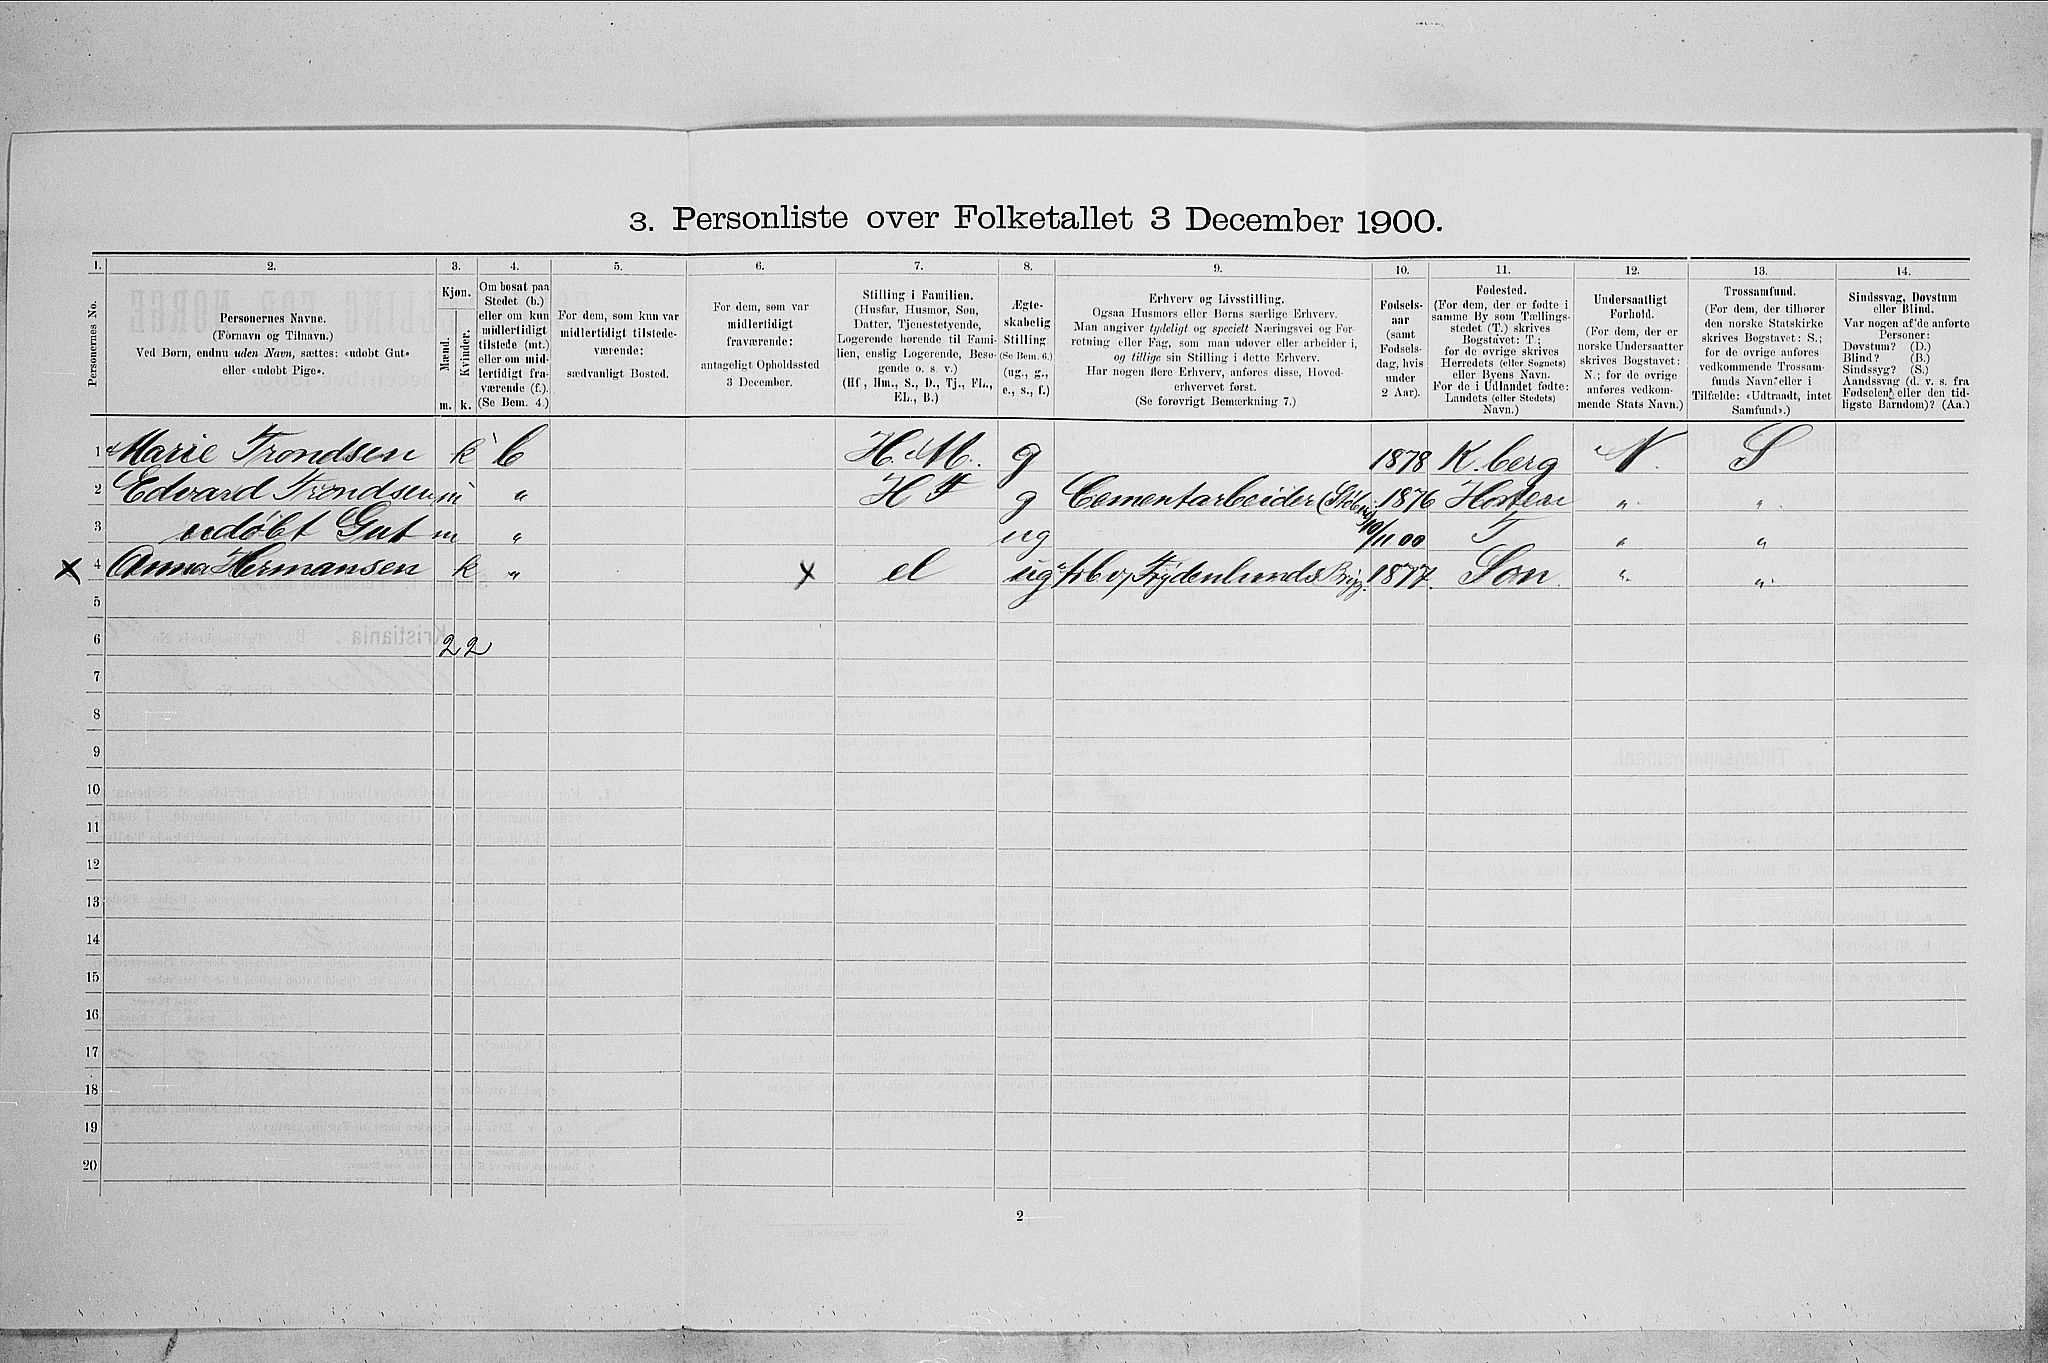 3. Personliste over Folketallet 3 December 1900.
1. 2. 3. 4. 5. 6. 7. 8. 9. 10. 11. 12. 13. 14.
Personernes No.
Personernes Navne.
(Fornavn og Tilnavn.)
Ved Børn, endnu uden Navn, sættes: «udøbt Gut»
eller «udøbt Pige».
Kjøn.
Mænd.
Kvinder.
m. k.
Om bosat paa
Stedet (b.)
eller om kun
midlertidigt
tilstede (mt.)
eller om mid-
lertidigt fra-
værende (f.).
(Se Bem. 4.)
For dem, som kun var
midlertidigt tilstede-
værende:
sædvanligt Bosted.
For dem, som var
midlertidigt
fraværende:
antageligt Opholdssted
3 December.
Stilling i Familien.
(Husfar, Husmor, Søn,
Datter, Tjenestetyende,
Logerende hørende til Fami-
lien, enslig Logerende, Besø-
gende o. s. v.)
(Hf., Hm., S., D., Tj., FL.,
EL., B.)
Ægte-
skabelig
Stilling
(Se Bem. 6.)
(ug., g.,
e., s., f.)
Erhverv og Livsstilling.
Ogsaa Husmors eller Børns særlige Erhverv.
Man angiver tydeligt og specielt Næringsvei og For-
retning eller Fag, som man udøver eller arbeider i,
og tillige sin Stilling i dette Erhverv.
Har nogen flere Erhverv, anføres disse, Hoved-
erhvervet først.
(Se forøvrigt Bemærkning 7.)
Fødsels-
aar
(samt
Fødsels-
dag, hvis
under
2 Aar).
Fødested.
(For dem, der er fødte i
samme By som Tællings-
stedet (T.) skrives
Bogstavet: T.;
for de øvrige skrives
Herredets (eller Sognets)
eller Byens Navn.
For de i Udlandet fødte:
Landets (eller Stedets)
Navn.)
Undersaatligt
Forhold.
(For dem, der er
norske Undersaatter
skrives Bogstavet:
N.; for de øvrige
anføres vedkom-
mende Stats Navn.)
Trossamfund.
(For dem, der tilhører
den norske Statskirke
skrives Bogstavet: S.;
for de øvrige anføres
vedkommende Trossam-
funds Navn, eller i
Tilfælde: «Udtraadt, intet
Samfund».)
Sindssvag, Døvstum
eller Blind.
Var nogen af de anførte
Personer:
Døvstum? (D.)
Blind? (B.)
Sindssyg? (S.)
Aandssvag (d. v. s. fra
Fødselen eller den tid-
ligste Barndom)? (Aa.)
1 Marie Trondsen k b H. M. g 1878 K.berg N. S
2 Edvard Trondsen m " H F g Cementarbeider 1876 Horten " "
3 udøbt Gut m " ug 10/11 00 T " "
x 4 Anna Hermansen k " x el ug Frydenlunds Brygg. 1877. Son. " "
5
6 2 2
7
8
9
10
11
12
13
14
15
16
17
18
19
20
2